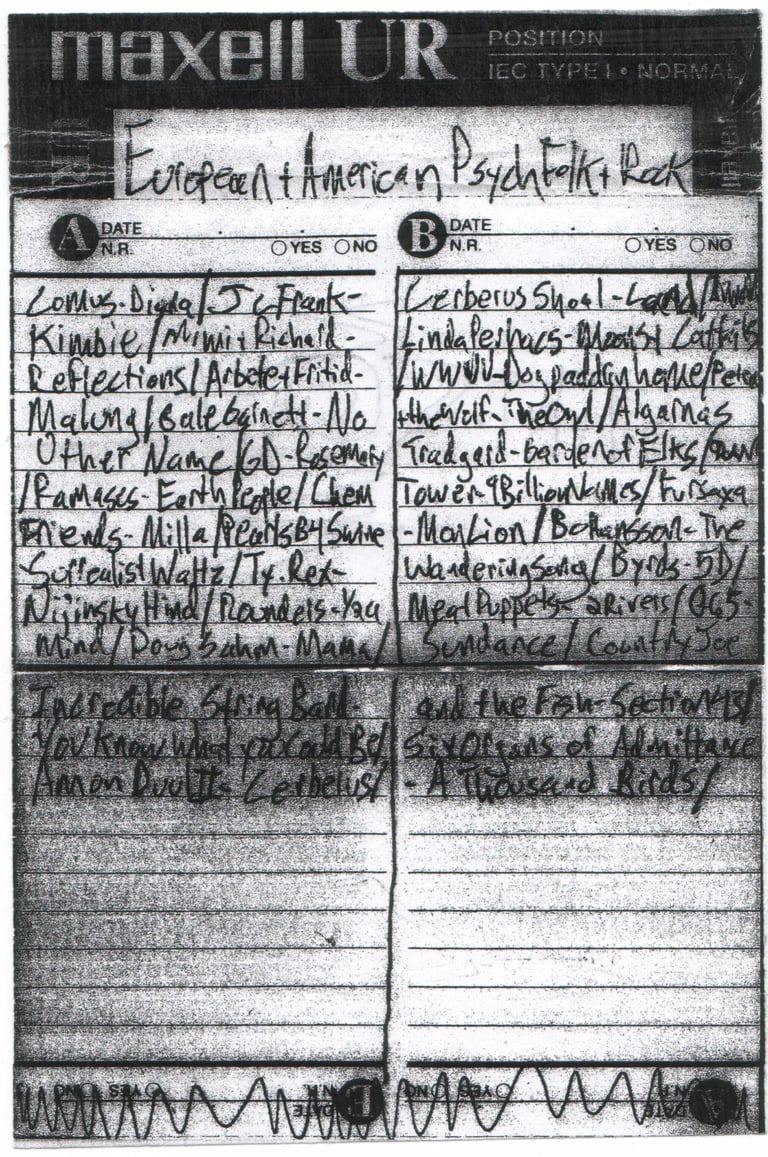 maxell UR
POSITION
IEC TYPE I • NORMAL
UR
European + American Psych Folk + Rock
A DATE
N.R. YES NO
Comus - Diana / Jc Frank -
Kimbie / Mimi + Richard -
Reflections / Arbete + Fritid -
Malung / Gale Garnett - No
Other Name / GD - Rosemary
/ Ramases - Earth People / Chem
Friends - Milla / Pearls B4 Swine
- Surrealist Waltz / Ty. Rex -
Nijinsky Hind / Rounders - Yaa
Mind / Doug Sahm - Mama /
Incredible String Band -
You Know What you Could Be /
Amon Duul II - Cerberus /
B DATE
N.R. YES NO
Cerberus Shoal - /
Linda Perhacs - Catt
/ WWVV - Dogpaddlin home / Peter
+ the Wolf - The Owl / Algarnas
Tradgard - Garden of Elks /
Tower - 9 Billion Names / Fursaxa
- Moonlion / Bo Hansson - The
Wandering Song / Byrds - 5D /
Meat Puppets - 2 Rivers / QG5 -
Sundance / Country Joe
and the Fish - Section 43 /
Six Organs of Admittance
- A Thousand Birds /
YES NO
N.R.
DATE
YES NO
N.R.
DATE